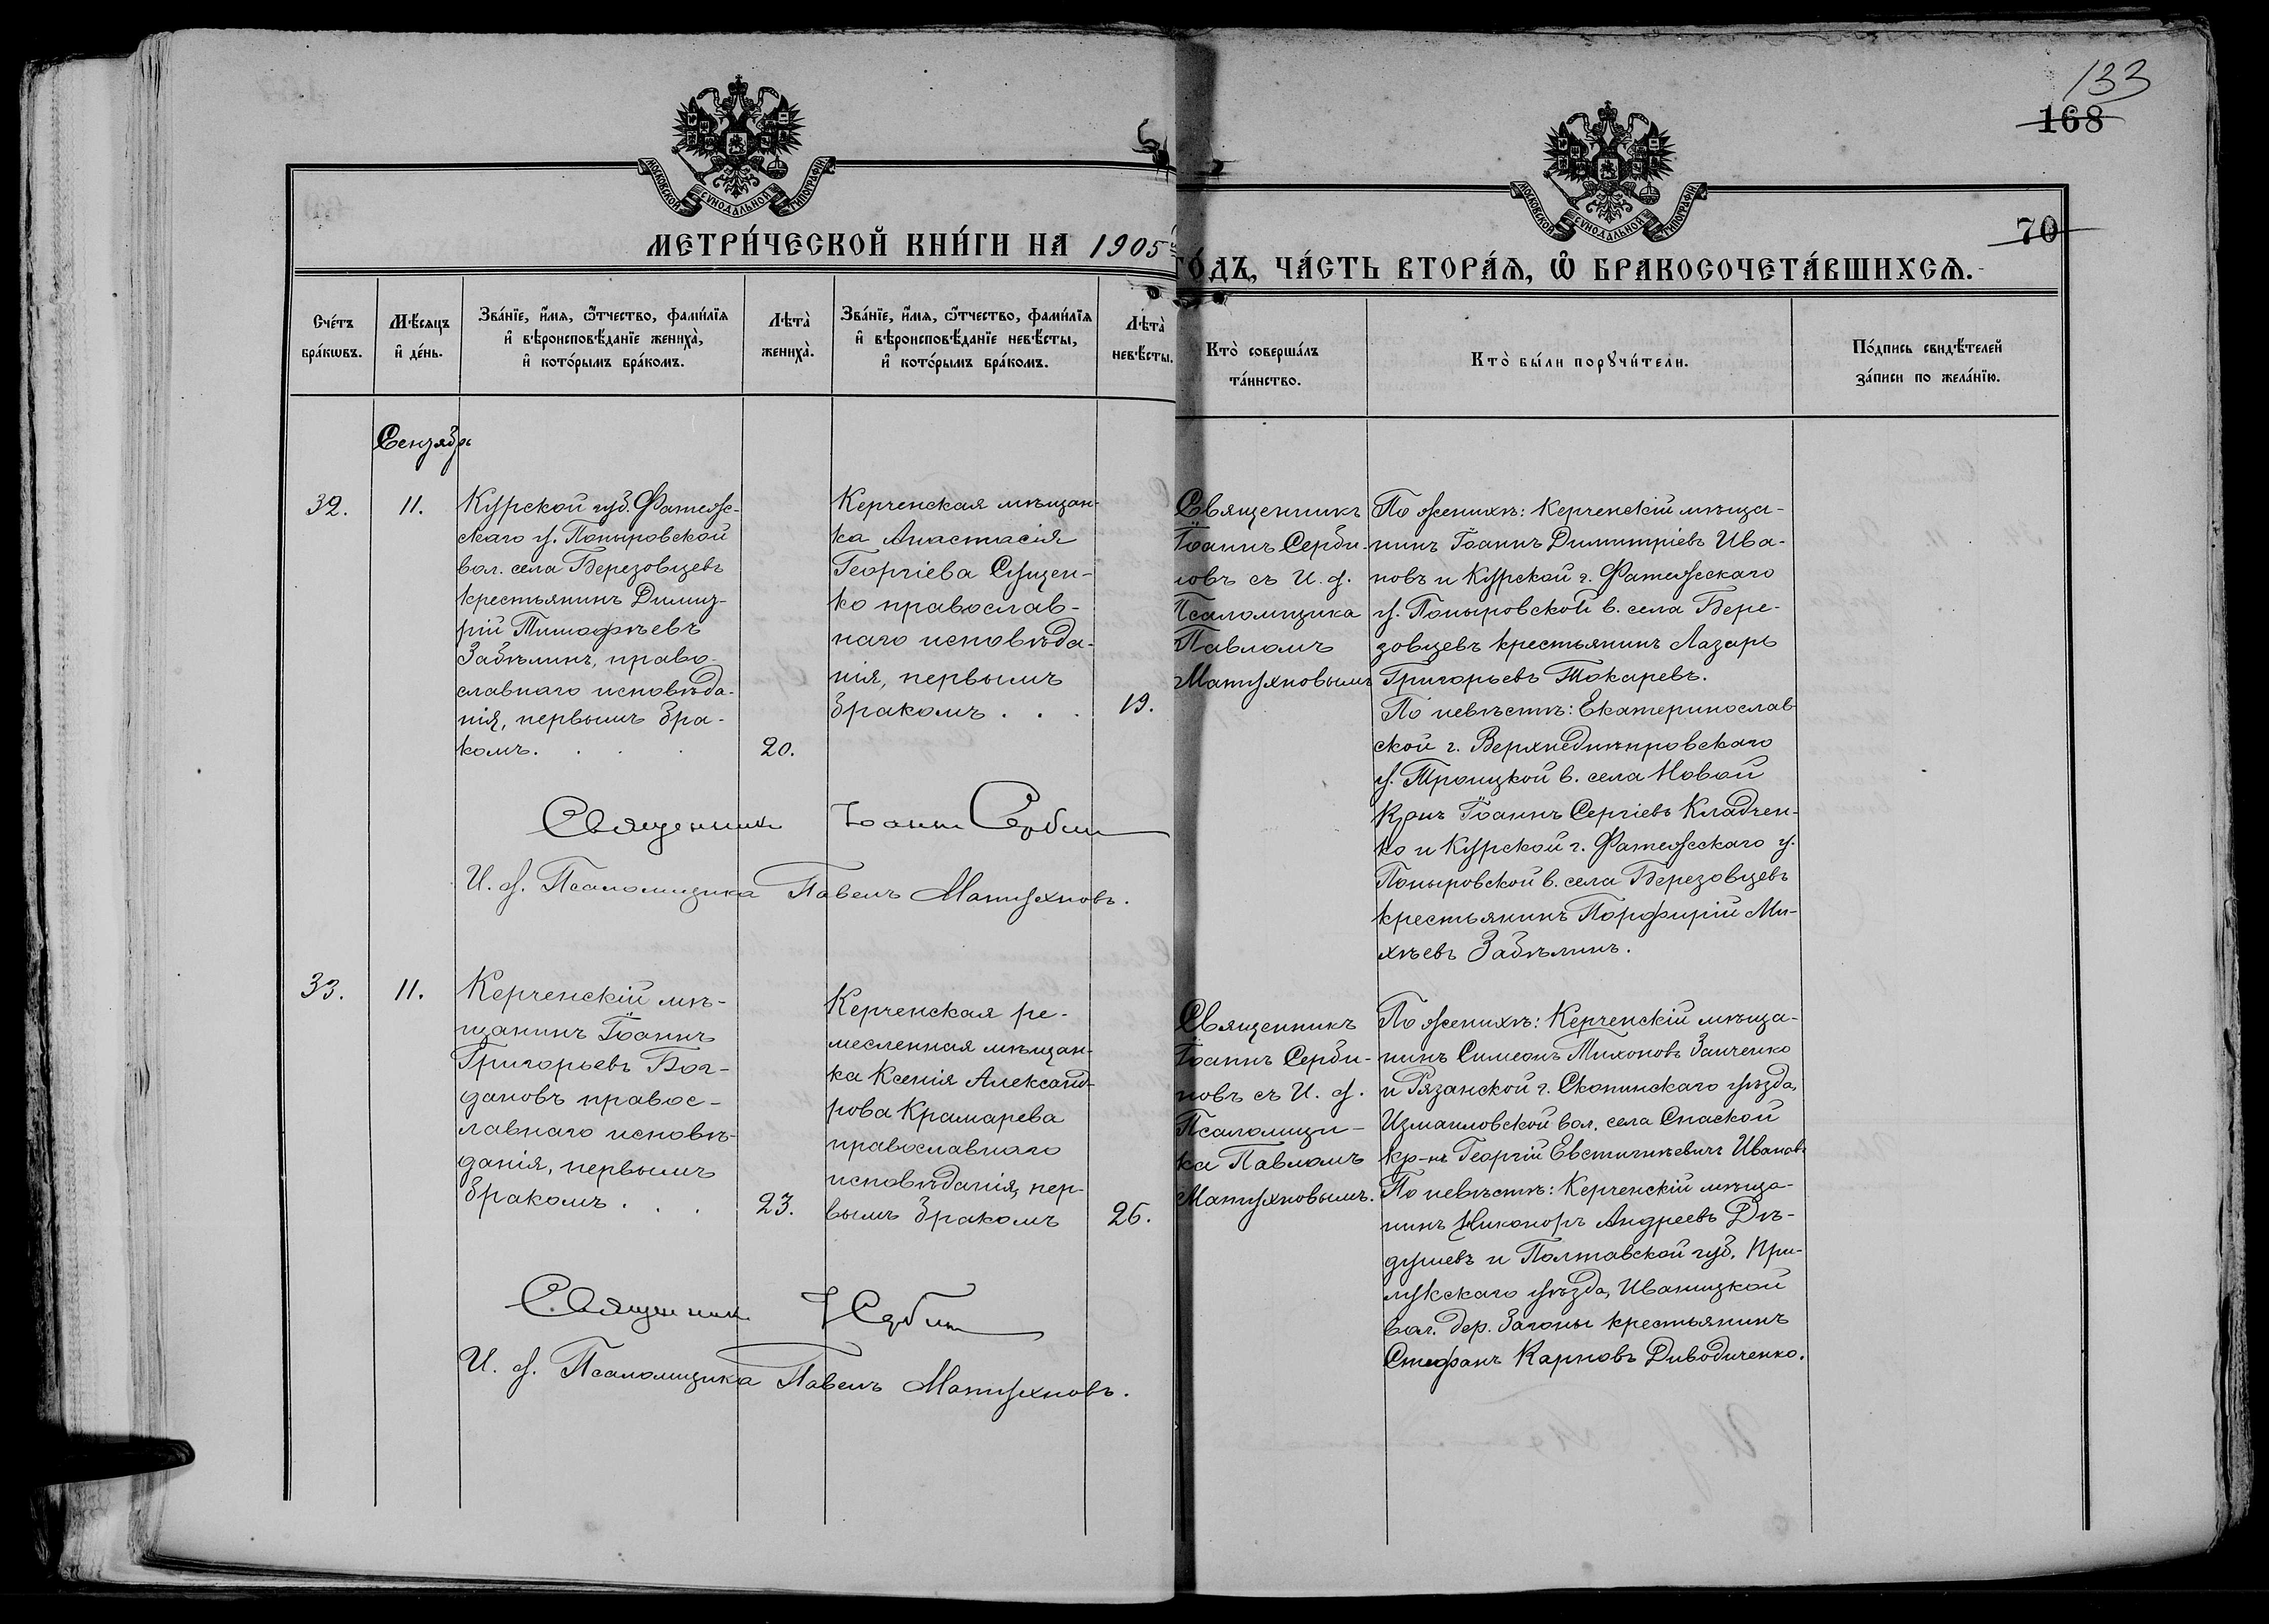 133
168
70
МОСКОВСКОЙ СѴНОДАЛЬНОЙ ТИПОГРАФІИ
МОСКОВСКОЙ СѴНОДАЛЬНОЙ ТИПОГРАФІИ
МЕТРИ́ЧЕСКОЙ КНИ́ГИ НА 1905
ГО́ДЪ, ЧА́СТЬ ВТОРА́Ѧ, Ѡ҆ БРАКОСОЧЕТА́ВШИХСѦ.
Сче́тъ
бра́кѡвъ.
Мѣ́сѧцъ
и҆ де́нь.
Зва́нїе, и҆́мѧ, ѻ҆́тчество, фами́лїѧ
и҆ вѣроисповѣ́данїе жениха̀,
и҆ кото́рымъ бра́комъ.
Лѣта̀
жениха̀.
Зва́нїе, и҆́мѧ, ѻ҆́тчество, фами́лїѧ
и҆ вѣроисповѣ́данїе невѣ́сты,
и҆ кото́рымъ бра́комъ.
Лѣта̀
невѣ́сты.
Кто̀ соверша́лъ
та́инство.
Кто̀ бы́ли порꙋчи́тели.
По́дпись свидѣ́телей
за́писи по жела́нїю.
Сентябрь
32.
11.
Курской губ. Фатежс-
скаго у. Поныровской
вол. села Березовцевъ
крестьянинъ Димит-
рій Тимофѣевъ
Забѣлинъ, право-
славнаго исповѣда-
нія, первымъ бра-
комъ. . . .
20.
Керченская мѣщан-
ка Анастасія
Георгіева Сущен-
ко православ-
наго исповѣда-
нія, первымъ
бракомъ . . .
19.
Священникъ
Іоаннъ Серби-
новъ съ И. д.
Псаломщика
Павломъ
Матухновымъ
По женихѣ: Керченскій мѣща-
нинъ Іоаннъ Димитріевъ Ива-
новъ и Курской г. Фатежскаго
у. Поныровской в. села Бере-
зовцевъ крестьянинъ Лазарь
Григорьевъ Токаревъ.
По невѣстѣ: Екатеринослав-
ской г. Верхнеднѣпровскаго
у. Троицкой в. села Новой
Іоаннъ Сергіевъ Кладчен-
ко и Курской г. Фатежскаго у.
Поныровской в. села Березовцевъ
крестьянинъ Порфирій Ми-
хѣевъ Забѣлинъ.
Священникъ Іоаннъ Сербин
И. д. Псаломщика Павелъ Матухновъ.
33.
11.
Керченскій мѣ-
щанинъ Іоаннъ
Григорьевъ Бог-
дановъ правос-
лавнаго исповѣ-
данія, первымъ
бракомъ . . .
23.
Керченская ре-
месленная мѣщан-
ка Ксенія Александ-
рова Крамарева
православнаго
исповѣданія, пер-
вымъ бракомъ
26.
Священникъ
Іоаннъ Серби-
новъ съ И. д.
Псаломщи-
ка Павломъ
Матухновымъ.
По женихѣ: Керченскій мѣща-
нинъ Симеонъ Тихоновъ Заиченко
и Рязанской г. Скопинскаго уѣзда,
Измаиловской вол. села Спаской
кр-нъ Георгій Евстигнѣевичъ Ивановъ
По невѣстѣ: Керченскій мѣща-
нинъ Никаноръ Андреевъ Дѣ-
душевъ и Полтавской губ. При-
лукскаго уѣзда, Иваницкой
вол. дер. Загоны крестьянинъ
Стефанъ Карповъ Диводиченко.
Священник І Сербин
И. д. Псаломщика Павелъ Матухновъ.